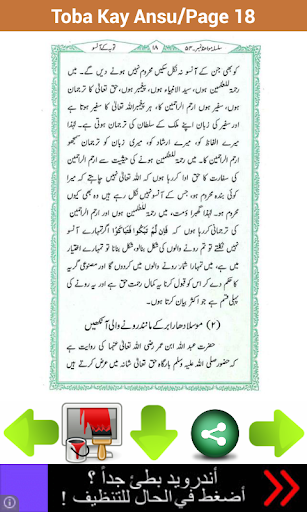 Toba Kay Ansu/Page 18
توبہ کے آنسو
۱۸
سلسلہ مواعظ نمبر۔ ۵۴
کو بھی جن کے آنسو نہ نکل سکیں محروم نہیں ہونے دیں گے۔ میں
رحمۃ للعٰلمین ہوں، سید الانبیاء ہوں، پیغمبر ہوں، حق تعالیٰ کا ترجمان
ہوں، سفیر ہوں ارحم الراحمین کا۔ ہر پیغمبر اللہ تعالیٰ کا سفیر ہوتا ہے
اور سفیر کی زبان اپنے ملک کے سلطان کی ترجمان ہوتی ہے۔ لہٰذا
میرے الفاظ کو، میرے ارشاد کو، میری زبان کو ترجمان سمجھو
ارحم الراحمین کا۔ میں رحمۃ للعٰلمین ہونے کی حیثیت سے ارحم الراحمین
کی سفارت کا حق ادا کر رہا ہوں کہ اللہ تعالیٰ نہیں چاہتے کہ میرا
کوئی بندہ محروم ہو، جس کے آنسو نہیں نکل رہے ہیں وہ بھی کیوں
محروم ہو۔ لہٰذا گھبراؤ مت، میں رحمۃ للعٰلمین ہوں اور ارحم الراحمین
کی ترجمانی کر رہا ہوں کہ فَاِنْ لَّمْ تَبْكُوْا فَتَبَاكَوْا اگر تمہارے آنسو
نہیں نکلتے تو تم رونے والوں کی شکل بنا لو، شکل بنانا تو تمہارے اختیار
میں ہے، میں تمہارا شمار رونے والوں میں کردوں گا اور مصنوعی گریہ
کا حکم دے کر اس کو قبول کرنا یہ کمال رحمت حق ہے اور یہ رونے کی
پہلی قسم ہے جو میں اکثر بیان کرتا ہوں۔
(۲) موسلادھار ابر کے مانند رونے والی آنکھیں
حضرت عبد اللہ ابن عمر رضی اللہ تعالیٰ عنہما کی روایت ہے
کہ حضور صلی اللہ علیہ وسلم بارگاہ حق تعالیٰ شانہ میں عرض کرتے ہیں
أندرويد بطئ جداً ؟
أضغط في الحال للتنظيف !